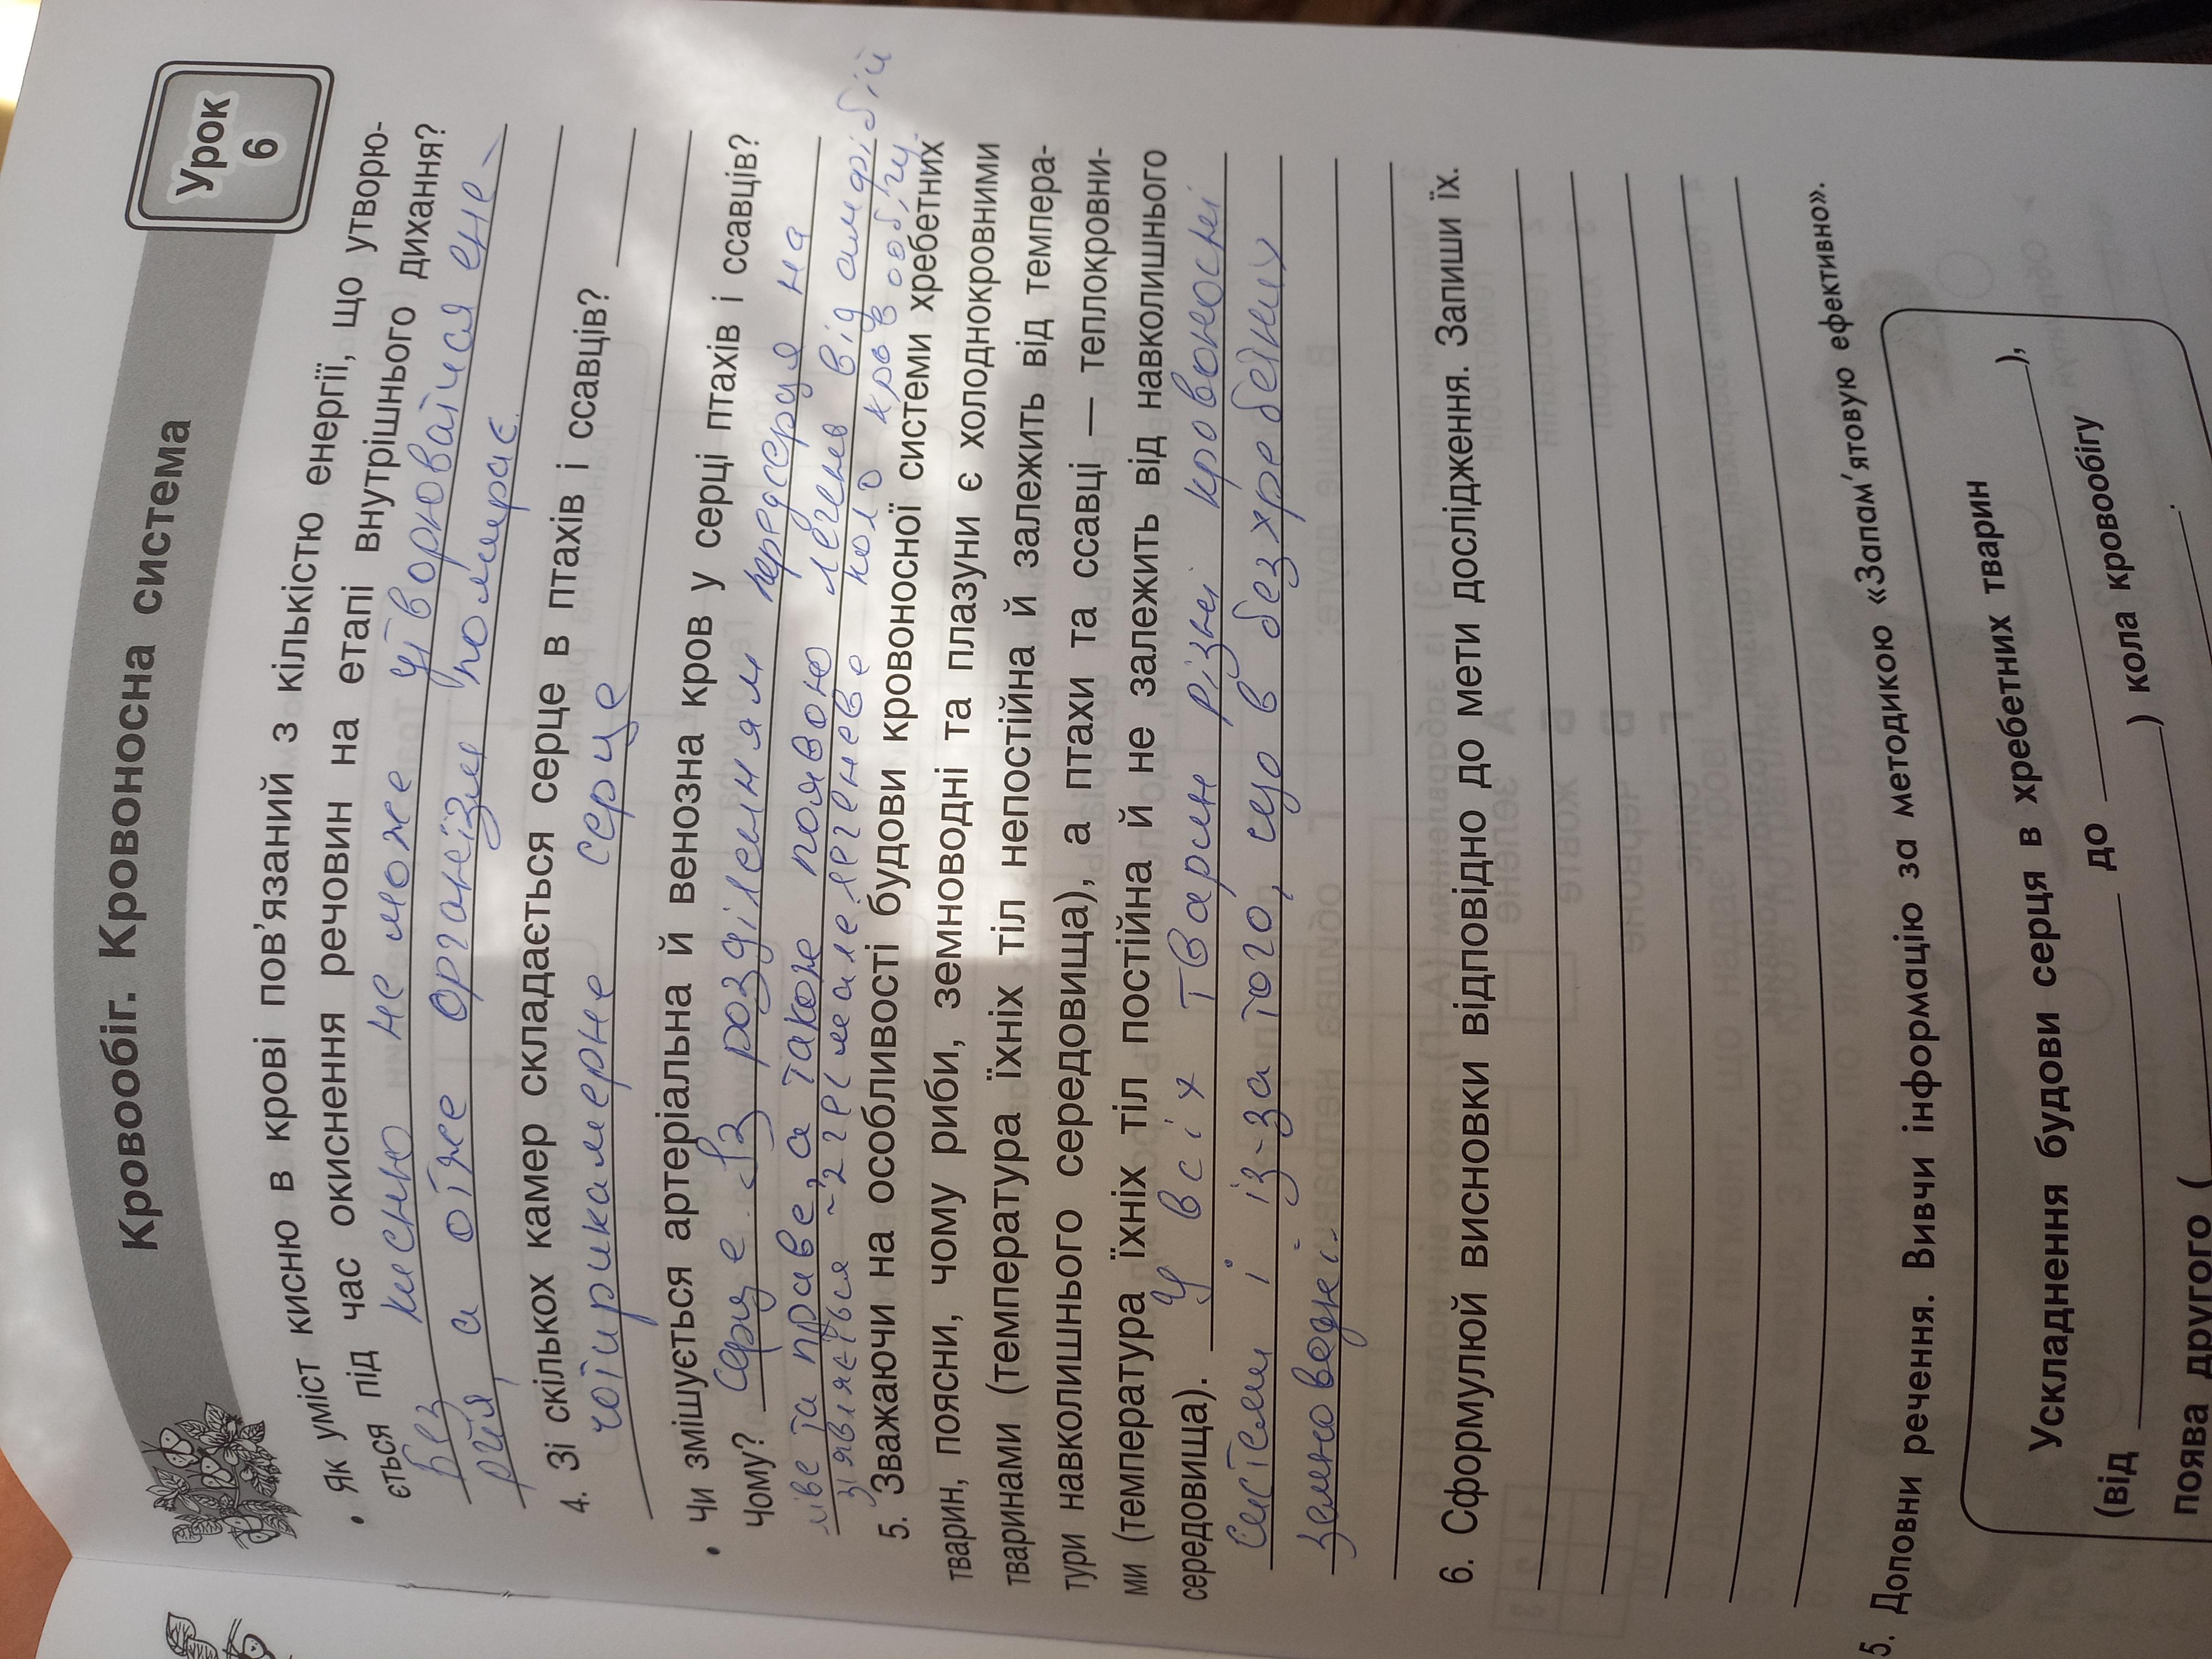 Кровообіг. Кровоносна система
Урок
6
• Як уміст кисню в крові пов’язаний з кількістю енергії, що утворю-
ється під час окиснення речовин на етапі внутрішнього дихання?
Без кисню не може утворюватися ене-
ргія, а отже організм помирає.
4. Зі скількох камер складається серце в птахів і ссавців?
чотирикамерне серце
• Чи змішується артеріальна й венозна кров у серці птахів і ссавців?
Чому? Серце із розділенням передсердя на
ліве та праве, а також появою легенів від амфібій
зіявляється ~2ге (мале) легеневе коло кровообігу.
5. Зважаючи на особливості будови кровоносної системи хребетних
тварин, поясни, чому риби, земноводні та плазуни є холоднокровними
тваринами (температура їхніх тіл непостійна й залежить від темпера-
тури навколишнього середовища), а птахи та ссавці — теплокровни-
ми (температура їхніх тіл постійна й не залежить від навколишнього
середовища). У всіх тварин різні кровоносні
системи і із-за того, що в безхребетних
земноводні.
6. Сформулюй висновки відповідно до мети дослідження. Запиши їх.
5. Доповни речення. Вивчи інформацію за методикою «Запам’ятовую ефективно».
Ускладнення будови серця в хребетних тварин
(від до ),
поява другого ( ) кола кровообігу
.